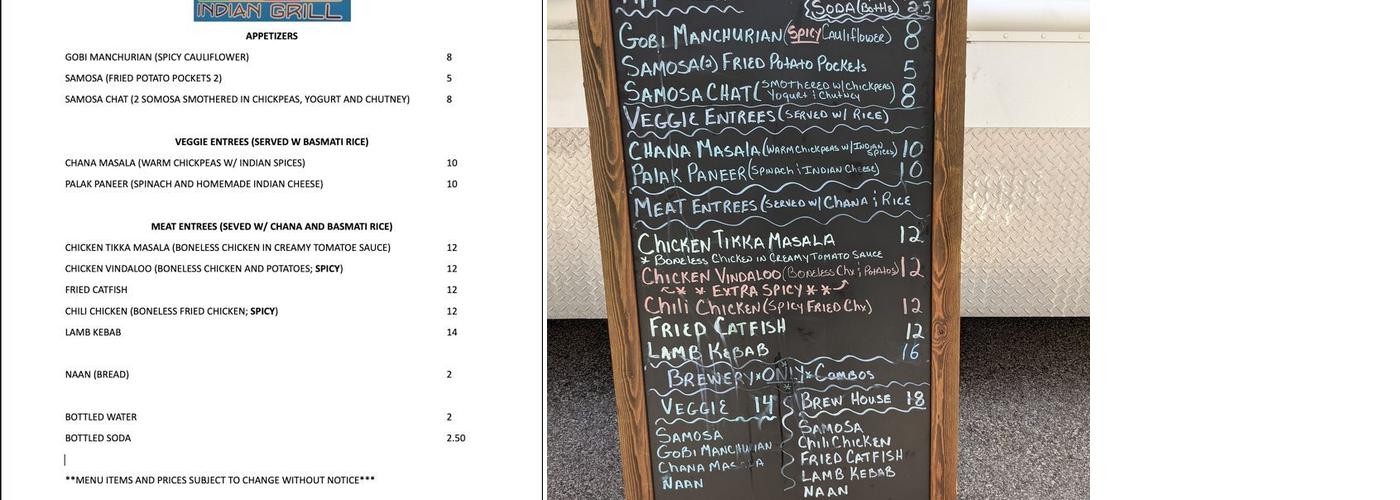 INDIAN GRILL
APPETIZERS
GOBI MANCHURIAN (SPICY CAULIFLOWER) 8
SAMOSA (FRIED POTATO POCKETS 2) 5
SAMOSA CHAT (2 SOMOSA SMOTHERED IN CHICKPEAS, YOGURT AND CHUTNEY) 8
VEGGIE ENTREES (SERVED W BASMATI RICE)
CHANA MASALA (WARM CHICKPEAS W/ INDIAN SPICES) 10
PALAK PANEER (SPINACH AND HOMEMADE INDIAN CHEESE) 10
MEAT ENTREES (SEVED W/ CHANA AND BASMATI RICE)
CHICKEN TIKKA MASALA (BONELESS CHICKEN IN CREAMY TOMATOE SAUCE) 12
CHICKEN VINDALOO (BONELESS CHICKEN AND POTATOES; SPICY) 12
FRIED CATFISH 12
CHILI CHICKEN (BONELESS FRIED CHICKEN; SPICY) 12
LAMB KEBAB 14
NAAN (BREAD) 2
BOTTLED WATER 2
BOTTLED SODA 2.50
**MENU ITEMS AND PRICES SUBJECT TO CHANGE WITHOUT NOTICE***
SODA (Bottle) 2.5
GOBI MANCHURIAN (SPICY Cauliflower) 8
SAMOSA (2) FRIED POTATO POCKETS 5
SAMOSA CHAT (SMOTHERED W/ CHICKPEAS Yogurt & Chutney) 8
VEGGIE ENTREES (SERVED W/ RICE)
CHANA MASALA (WARM Chickpeas W/ INDIAN SPICES) 10
PALAK PANEER (SPINACH & INDIAN CHEESE) 10
MEAT ENTREES (SERVED W/ CHANA & RICE
CHICKEN TIKKA MASALA 12
* BONELESS CHICKEN IN CREAMY TOMATO SAUCE
CHICKEN VINDALOO (BONELESS Chx & POTATOS) 12
* * EXTRA SPICY * *
Chili Chicken (SPICY FRIED Chx) 12
FRIED CATFISH 12
LAMB KEBAB 16
BREWERY *ONLY* Combos
VEGGIE 14
SAMOSA
GOBI MANCHURIAN
CHANA MASALA
NAAN
BREW HOUSE 18
SAMOSA
Chili CHICKEN
FRIED CATFISH
LAMB KEBAB
NAAN